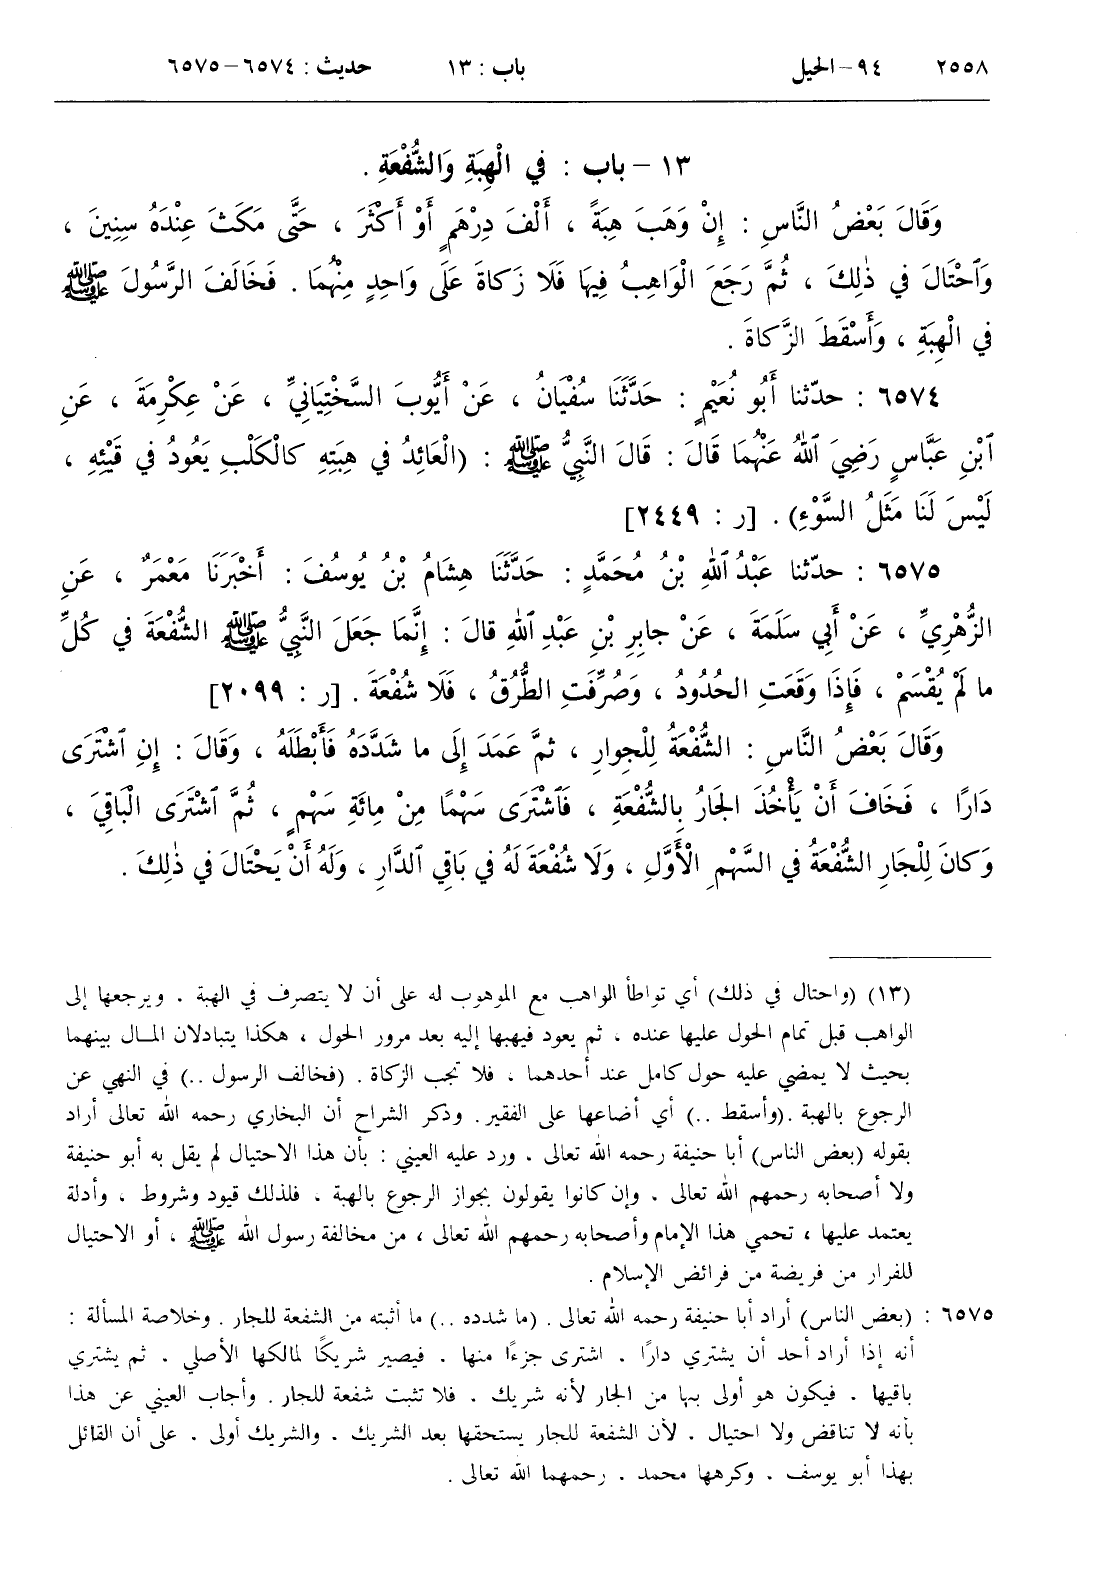 ٢٥٥٨ ٩٤-الحيل باب : ١٣ حديث : ٦٥٧٤-٦٥٧٥
١٣ - باب : في الْهِبَةِ وَالشُّفْعَةِ .
وَقَالَ بَعْضُ النَّاسِ : إِنْ وَهَبَ هِبَةً ، أَلْفَ دِرْهَمٍ أَوْ أَكْثَرَ ، حَتَّى مَكَثَ عِنْدَهُ سِنِينَ ،
وَٱحْتَالَ في ذٰلِكَ ، ثُمَّ رَجَعَ الْوَاهِبُ فِيهَا فَلَا زَكاةَ عَلَى وَاحِدٍ مِنْهُمَا . فَخَالَفَ الرَّسُولَ ﷺ
في الْهِبَةِ ، وَأَسْقَطَ الزَّكاةَ .
٦٥٧٤ : حدّثنا أَبُو نُعَيْمٍ : حَدَّثَنَا سُفْيَانُ ، عَنْ أَيُّوبَ السَّخْتِيَانِيِّ ، عَنْ عِكْرِمَةَ ، عَنِ
ٱبْنِ عَبَّاسٍ رَضِيَ ٱللهُ عَنْهُمَا قالَ : قالَ النَّبِيُّ ﷺ : (الْعَائِدُ في هِبَتِهِ كالْكَلْبِ يَعُودُ في قَيْئِهِ ،
لَيْسَ لَنَا مَثَلُ السَّوْءِ) . [ر : ٢٤٤٩]
٦٥٧٥ : حدّثنا عَبْدُ ٱللهِ بْنُ مُحَمَّدٍ : حَدَّثَنَا هِشَامُ بْنُ يُوسُفَ : أَخْبَرَنَا مَعْمَرٌ ، عَنِ
الزُّهْرِيِّ ، عَنْ أَبِي سَلَمَةَ ، عَنْ جابِرِ بْنِ عَبْدِ ٱللهِ قالَ : إِنَّمَا جَعَلَ النَّبِيُّ ﷺ الشُّفْعَةَ في كُلِّ
ما لَمْ يُقْسَمْ ، فَإِذَا وَقَعَتِ الحُدُودُ ، وَصُرِّفَتِ الطُّرُقُ ، فَلَا شُفْعَةَ . [ر : ٢٠٩٩]
وَقَالَ بَعْضُ النَّاسِ : الشُّفْعَةُ لِلْجِوارِ ، ثمَّ عَمَدَ إِلَى ما شَدَّدَهُ فَأَبْطَلَهُ ، وَقَالَ : إِنِ ٱشْتَرَى
دَارًا ، فَخَافَ أَنْ يَأْخُذَ الجَارُ بِالشُّفْعَةِ ، فَٱشْتَرَى سَهْمًا مِنْ مِائَةِ سَهْمٍ ، ثُمَّ ٱشْتَرَى الْبَاقِيَ ،
وَكانَ لِلْجَارِ الشُّفْعَةُ في السَّهْمِ الْأَوَّلِ ، وَلَا شُفْعَةَ لَهُ في بَاقِي ٱلدَّارِ ، وَلَهُ أَنْ يَحْتَالَ في ذٰلِكَ .
(١٣) (واحتال في ذلك) أي تواطأ الواهب مع الموهوب له على أن لا يتصرف في الهبة . ويرجعها إلى
الواهب قبل تمام الحول عليها عنده ، ثم يعود فيهبها إليه بعد مرور الحول ، هكذا يتبادلان المال بينهما
بحيث لا يمضي عليه حول كامل عند أحدهما ، فلا تجب الزكاة . (فخالف الرسول ..) في النهي عن
الرجوع بالهبة .(وأسقط ..) أي أضاعها على الفقير. وذكر الشراح أن البخاري رحمه الله تعالى أراد
بقوله (بعض الناس) أبا حنيفة رحمه الله تعالى . ورد عليه العيني : بأن هذا الاحتيال لم يقل به أبو حنيفة
ولا أصحابه رحمهم الله تعالى . وإن كانوا يقولون بجواز الرجوع بالهبة ، فلذلك قيود وشروط ، وأدلة
يعتمد عليها ، تحمي هذا الإمام وأصحابه رحمهم الله تعالى ، من مخالفة رسول الله ﷺ ، أو الاحتيال
للفرار من فريضة من فرائض الإسلام .
٦٥٧٥ : (بعض الناس) أراد أبا حنيفة رحمه الله تعالى . (ما شدده ..) ما أثبته من الشفعة للجار . وخلاصة المسألة :
أنه إذا أراد أحد أن يشتري دارًا . اشترى جزءًا منها . فيصير شريكًا لمالكها الأصلي . ثم يشتري
باقيها . فيكون هو أولى بها من الجار لأنه شريك . فلا تثبت شفعة للجار. وأجاب العيني عن هذا
بأنه لا تناقض ولا احتيال . لأن الشفعة للجار يستحقها بعد الشريك . والشريك أولى . على أن القائل
بهذا أبو يوسف . وكرهها محمد . رحمهما الله تعالى .